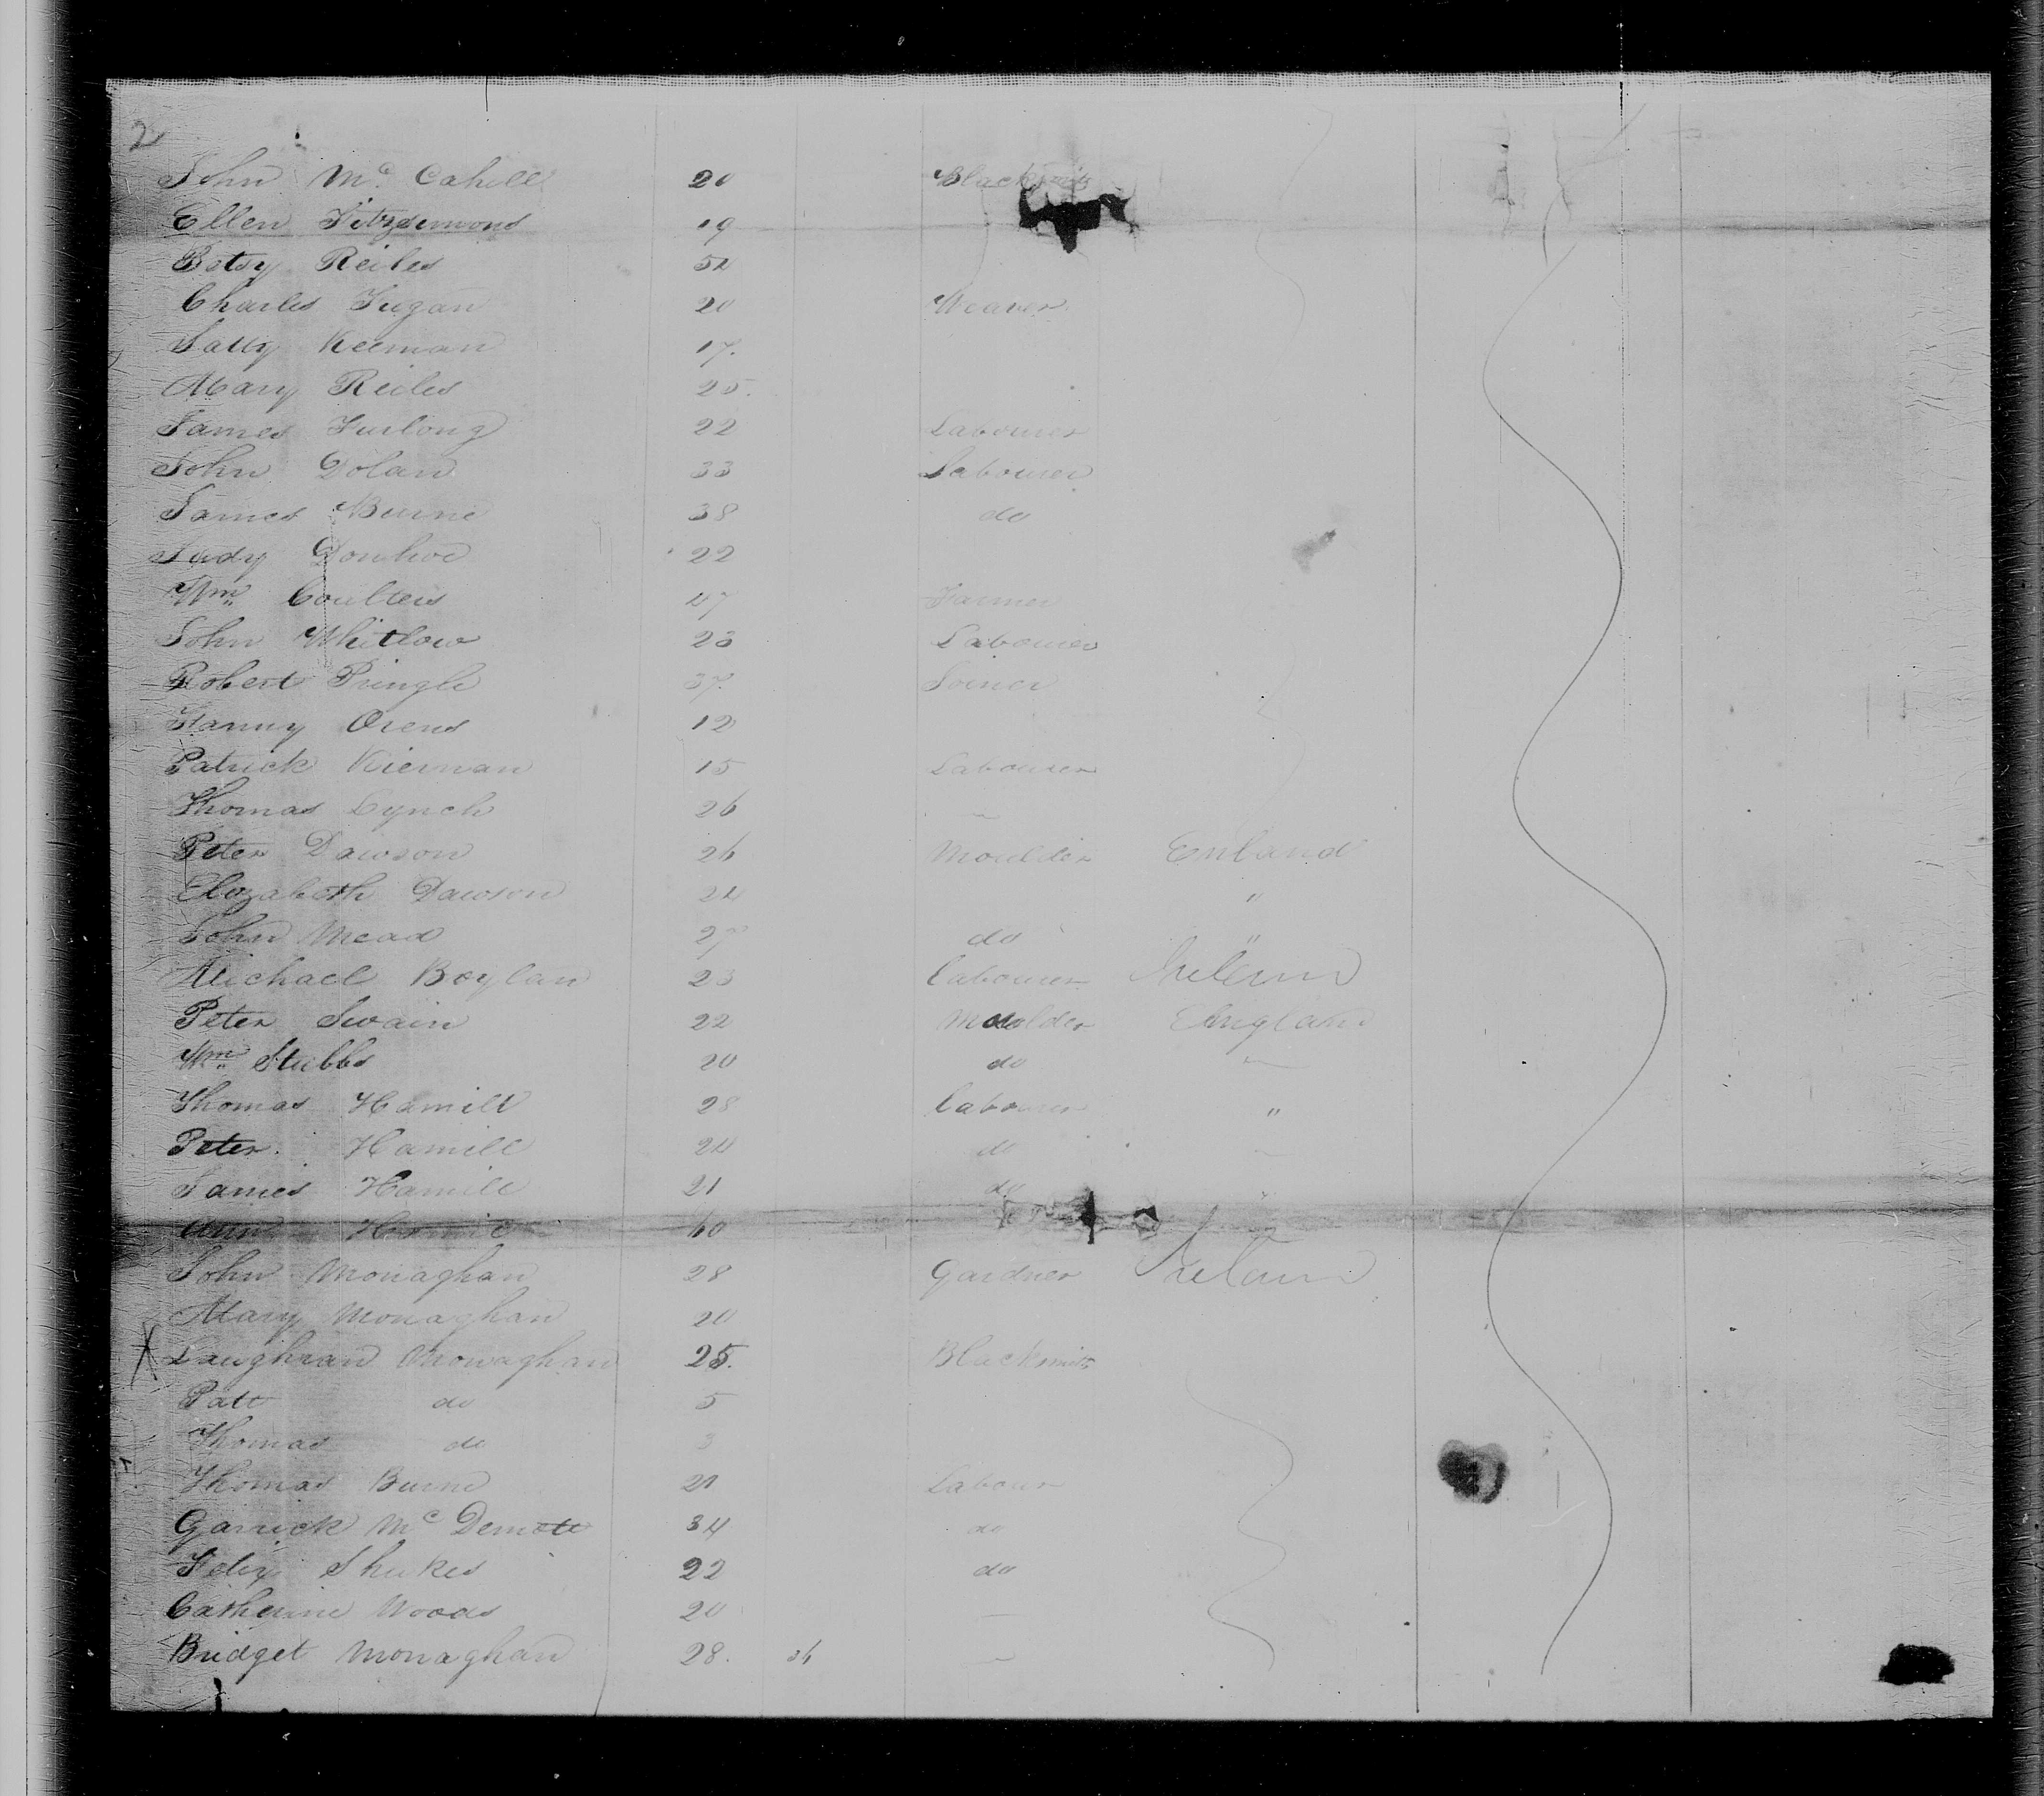 2
John Mc Cahill 20 Blacksmith
Ellen Fitzsimons 19
Betsy Reiles 52
Charles Fugan 20 Weaver
Sally Keeman 17.
Mary Reiles 25.
James Furlong 22 Labourer
John Dolan 33 Labourer
James Burne 38 do
Judy Donhoe 22
Wm Coulters 47 Farmer
John Whitlow 23 Labourer
Robert Pringle 37. Joiner
Fanny Orens 12
Patrick Kiernan 15 Labourer
Thomas Lynch 26 ~
Peter Dawson 26 Moulder Enland
Elizabeth Dawson 24 "
John Mead 27 do "
Michael Boylan 23 labourer Irelann
Peter Swain 22 Moulder England
Wm Stubbs 20 do ~
Thomas Hamill 28 labourer "
Peter Hamill 24 do ~
James Hamill 21 do "
Ann 60
John Monaghan 28 Gardner Irelan
Mary Monaghan 20
Laughran Monaghan 25. Blacksmith
Patt do 5
Thomas do 3
Thomas Burne 21 Labour
Garrick Mc Demott 34 do
Felix Shukes 22 do
Catherine Woods 20 —
Bridget Monaghan 28. 36 ~